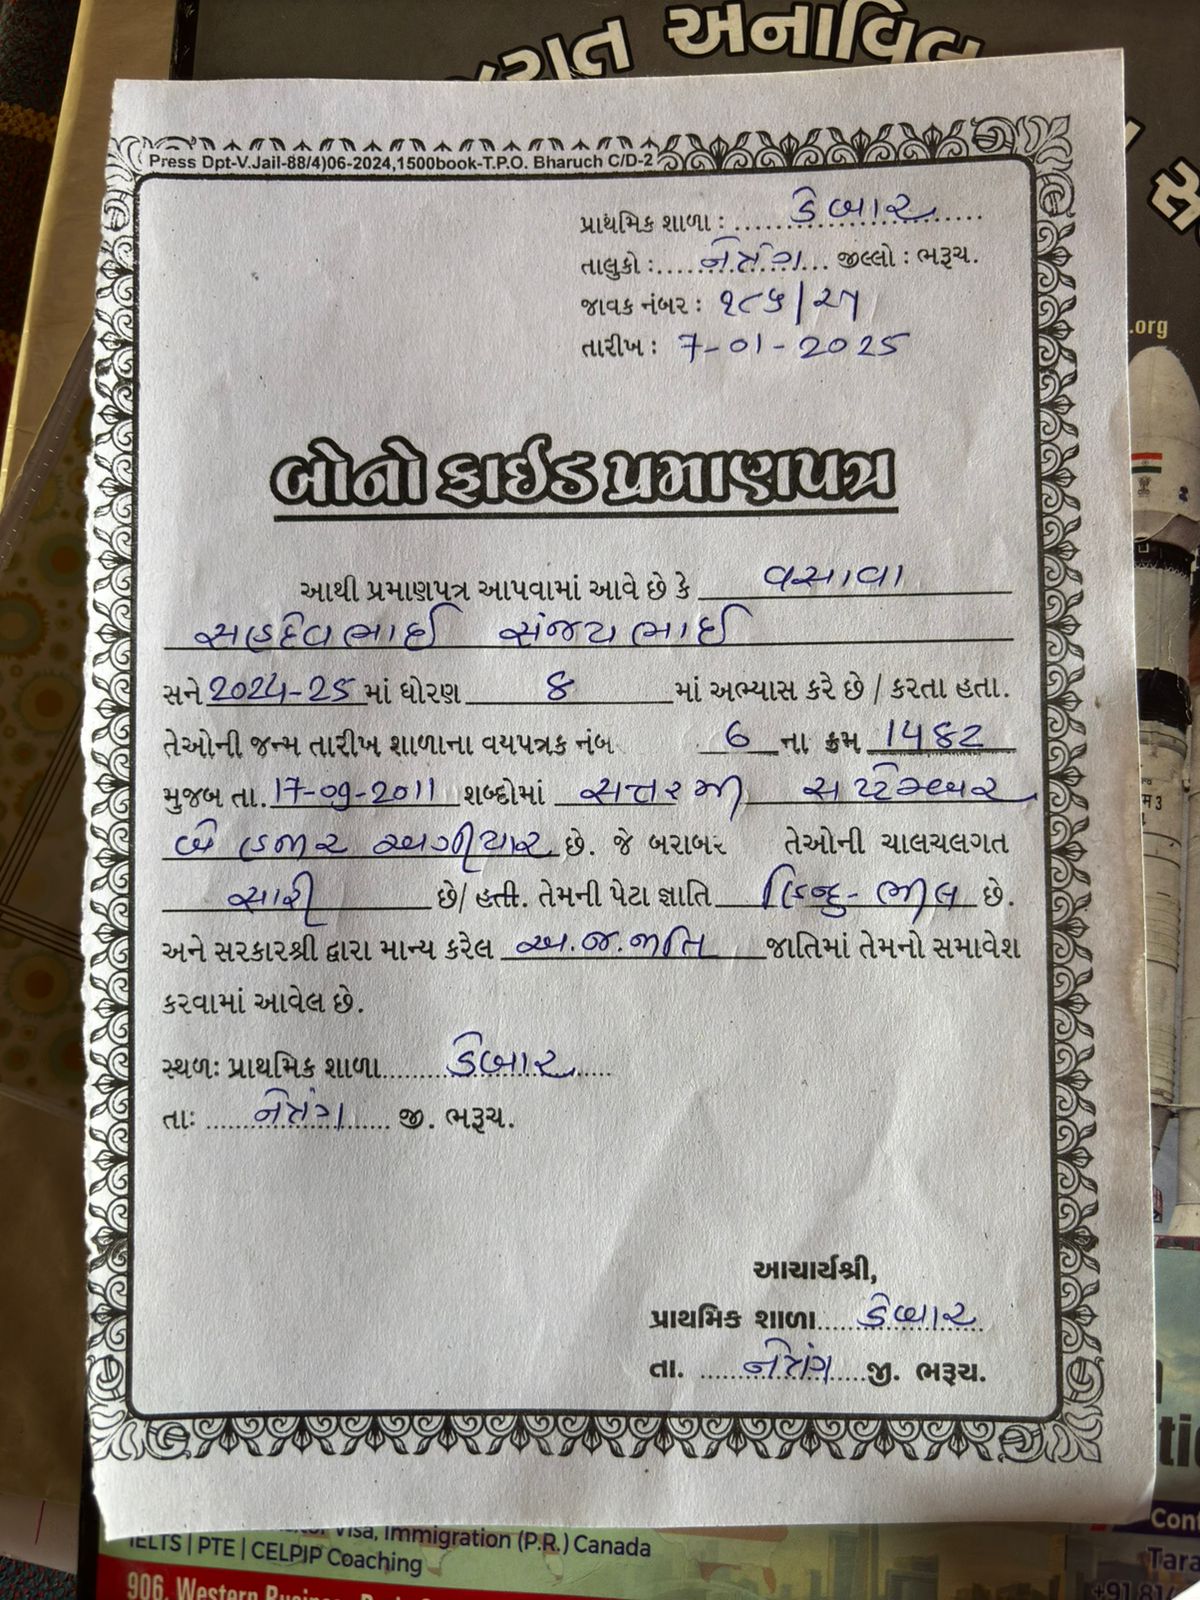 ગુજરાત અનાવિલ
Press Dpt-V.Jail-88/4)06-2024,1500book-T.P.O. Bharuch C/D-2
પ્રાથમિક શાળા : ડેબાર
તાલુકો : નેત્રંગ જીલ્લો : ભરૂચ.
જાવક નંબર : ૧૮૫/૨૫
.org
તારીખ : 7-01-2025
બોનોફાઈડ પ્રમાણપત્ર
આથી પ્રમાણપત્ર આપવામાં આવે છે કે વસાવા
સહદેવભાઈ સંજયભાઈ
સને 2024-25 માં ધોરણ 8 માં અભ્યાસ કરે છે / કરતા હતા.
તેઓની જન્મ તારીખ શાળાના વયપત્રક નંબ 6 ના ક્રમ 1482
મુજબ તા. 17-09-2011 શબ્દોમાં સત્તરમી સપ્ટેમ્બર
બે હજાર અગીયાર છે. જે બરાબર તેઓની ચાલચલગત
સારી છે/ હતી. તેમની પેટા જ્ઞાતિ હિન્દુ-ભીલ છે.
અને સરકારશ્રી દ્વારા માન્ય કરેલ અ.જ.જાતિ જાતિમાં તેમનો સમાવેશ
કરવામાં આવેલ છે.
સ્થળઃ પ્રાથમિક શાળા ડેબાર
તાઃ નેત્રંગ જી. ભરૂચ.
આચાર્યશ્રી,
પ્રાથમિક શાળા ડેબાર
તા. નેત્રંગ જી. ભરૂચ.
Visa, Immigration (P.R.) Canada
IELTS | PTE | CELPIP Coaching
906, Western